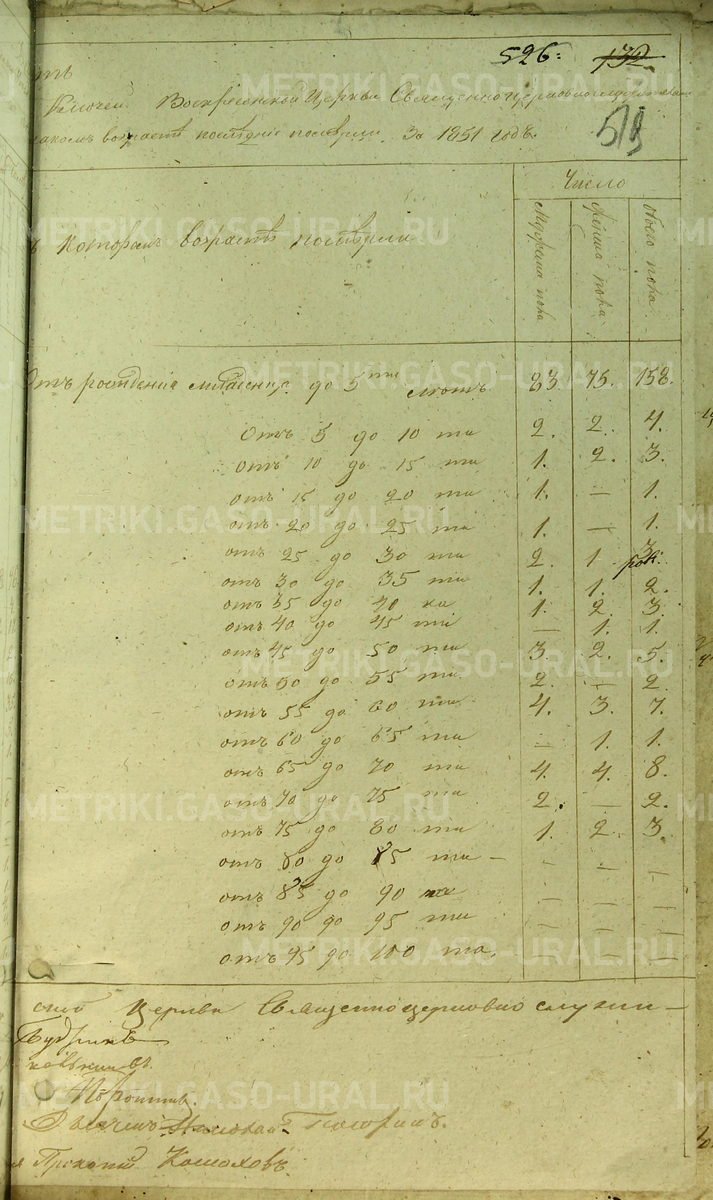 526: 132.
519
ть
Ключей Воскресенской Церкви Священноцерковнослужителями
какомъ возрастѣ послѣдніе померли. За 1851 годъ.
Число
Въ которомъ возрастѣ померли
Мужеска пола
Женска пола
Обоего пола
Отъ рожденія младенца до 5ти лѣтъ 83. 75. 158.
Отъ 5 до 10 ти 2. 2. 4.
отъ 10 до 15 ти 1. 2. 3.
отъ 15 до 20 ти 1. — 1.
отъ 20 до 25 ти 1. — 1.
отъ 25 до 30 ти 2. 1. 3.
отъ 30 до 35 ти 1. 1. 2.
отъ 35 до 40 ка 1. 2. 3.
отъ 40 до 45 ти — 1. 1.
отъ 45 до 50 ти 3. 2. 5.
отъ 50 до 55 ти 2. — 2.
отъ 55 до 60 ти 4. 3. 7.
отъ 60 до 65 ти — 1. 1.
отъ 65 до 70 ти 4. 4. 8.
отъ 70 до 75 ти 2. — 2.
отъ 75 до 80 ти 1. 2. 3.
отъ 80 до 85 ти — — — —
отъ 85 до 90 — — —
отъ 90 до 95 ти — — —
отъ 95 до 100 та. — — —
Церкви Священноцерковнослужи—
Георгіи
Прокопій
METRIKI.GASO-URAL.RU